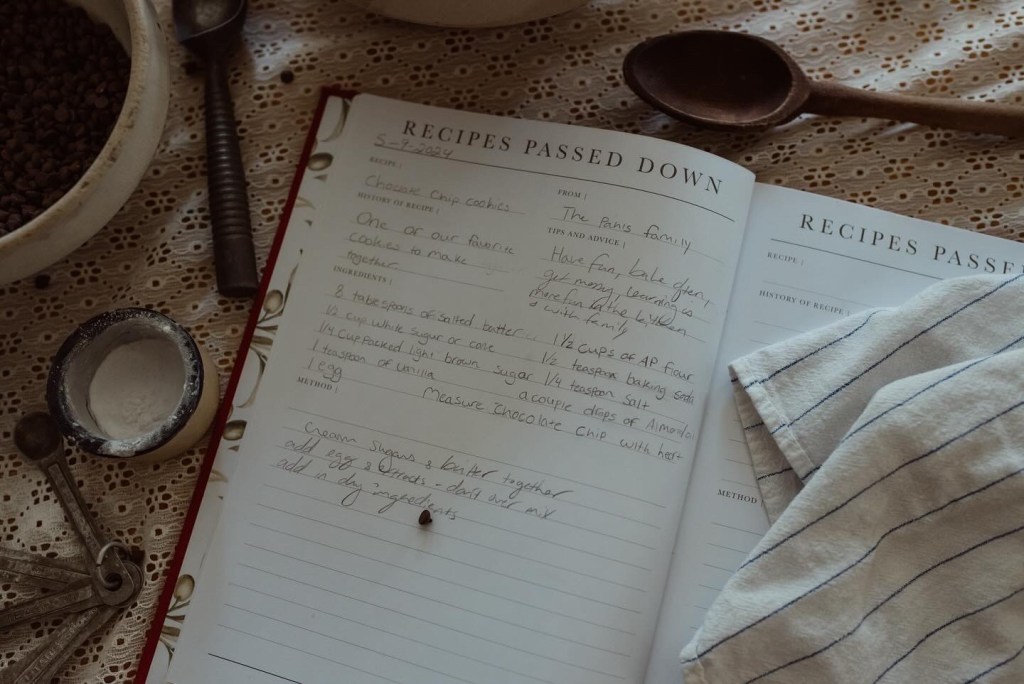 RECIPES PASSED DOWN
5-9-2024
RECIPE :
Chocolate Chip cookies
HISTORY OF RECIPE :
One of our favorite
cookies to make
together
FROM :
The Panis family
TIPS AND ADVICE :
Have fun, bake often,
get messy, learning is
more fun in the kitchen
& with family
INGREDIENTS :
8 tablespoons of salted butter
1/2 cup white sugar or cane
1/4 cup packed light brown sugar
1 teaspoon of vanilla
1 egg
1 1/2 cups of AP flour
1/2 teaspoon baking soda
1/4 teaspoon salt
a couple drops of Almond
Measure Chocolate Chip with heart
METHOD :
Cream sugars & butter together
add egg & extracts - don't over mix
add in dry ingredients
RECIPES PASSE
RECIPE :
HISTORY OF RECIPE :
METHOD